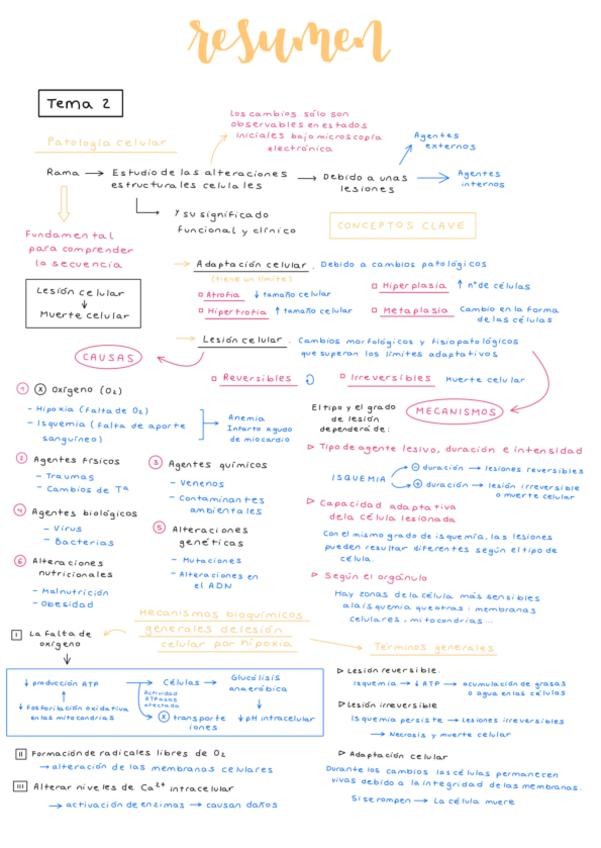 resumen
Tema 2
Patología celular
Los cambios sólo son
observables en estados
iniciales bajo microscopía
electrónica
Agentes
externos
Rama → Estudio de las alteraciones
estructurales celulales
→ Debido a unas
lesiones
→ Agentes
internos
Y su significado
funcional y clínico
Fundamental
para comprender
la secuencia
Lesión celular
↓
Muerte celular
CONCEPTOS CLAVE
→ Adaptación celular. Debido a cambios patológicos
(tiene un límite)
Atrofia ↓ tamaño celular
Hipertrofia ↑ tamaño celular
Hiperplasia ↑ nº de células
Metaplasia Cambio en la forma
de las células
→ Lesión celular. Cambios morfológicos y fisiopatológicos
que superan los límites adaptativos
Reversibles
Irreversibles Muerte celular
CAUSAS
① Ⓧ Oxígeno (O₂)
- Hipoxia (falta de O₂)
- Isquemia (falta de aporte
sanguíneo)
Anemia
Infarto agudo
de miocardio
② Agentes físicos
- Traumas
- Cambios de Tª
③ Agentes químicos
- Venenos
- Contaminantes
ambientales
④ Agentes biológicos
- Virus
- Bacterias
⑤ Alteraciones
genéticas
- Mutaciones
- Alteraciones en
el ADN
⑥ Alteraciones
nutricionales
- Malnutrición
- Obesidad
MECANISMOS
El tipo y el grado
de lesión
dependerá de:
▷ Tipo de agente lesivo, duración e intensidad
ISQUEMIA
⊖ duración → lesiones reversibles
⊕ duración → lesión irreversible
o muerte celular
▷ Capacidad adaptativa
de la célula lesionada
Con el mismo grado de isquemia, las lesiones
pueden resultar diferentes según el tipo de
célula.
▷ Según el orgánulo
Hay zonas de la célula más sensibles
a la isquemia que otras: membranas
celulares, mitocondrias...
Mecanismos bioquímicos
generales de lesión
celular por hipoxia
I La falta de
oxígeno
↓ producción ATP → Células → Glucólisis
anaeróbica
↓ Fosforilación oxidativa
en las mitocondrias
Actividad
ATPasas
afectada
Ⓧ transporte
iones
↓ pH intracelular
II Formación de radicales libres de O₂
→ alteración de las membranas celulares
III Alterar niveles de Ca²⁺ intracelular
→ activación de enzimas → causan daños
Términos generales
▷ Lesión reversible.
Isquemia → ↓ ATP → acumulación de grasas
o agua en las células
▷ Lesión irreversible
Isquemia persiste → Lesiones irreversibles
→ Necrosis y muerte celular
▷ Adaptación celular
Durante los cambios las células permanecen
vivas debido a la integridad de las membranas.
Si se rompen → La célula muere